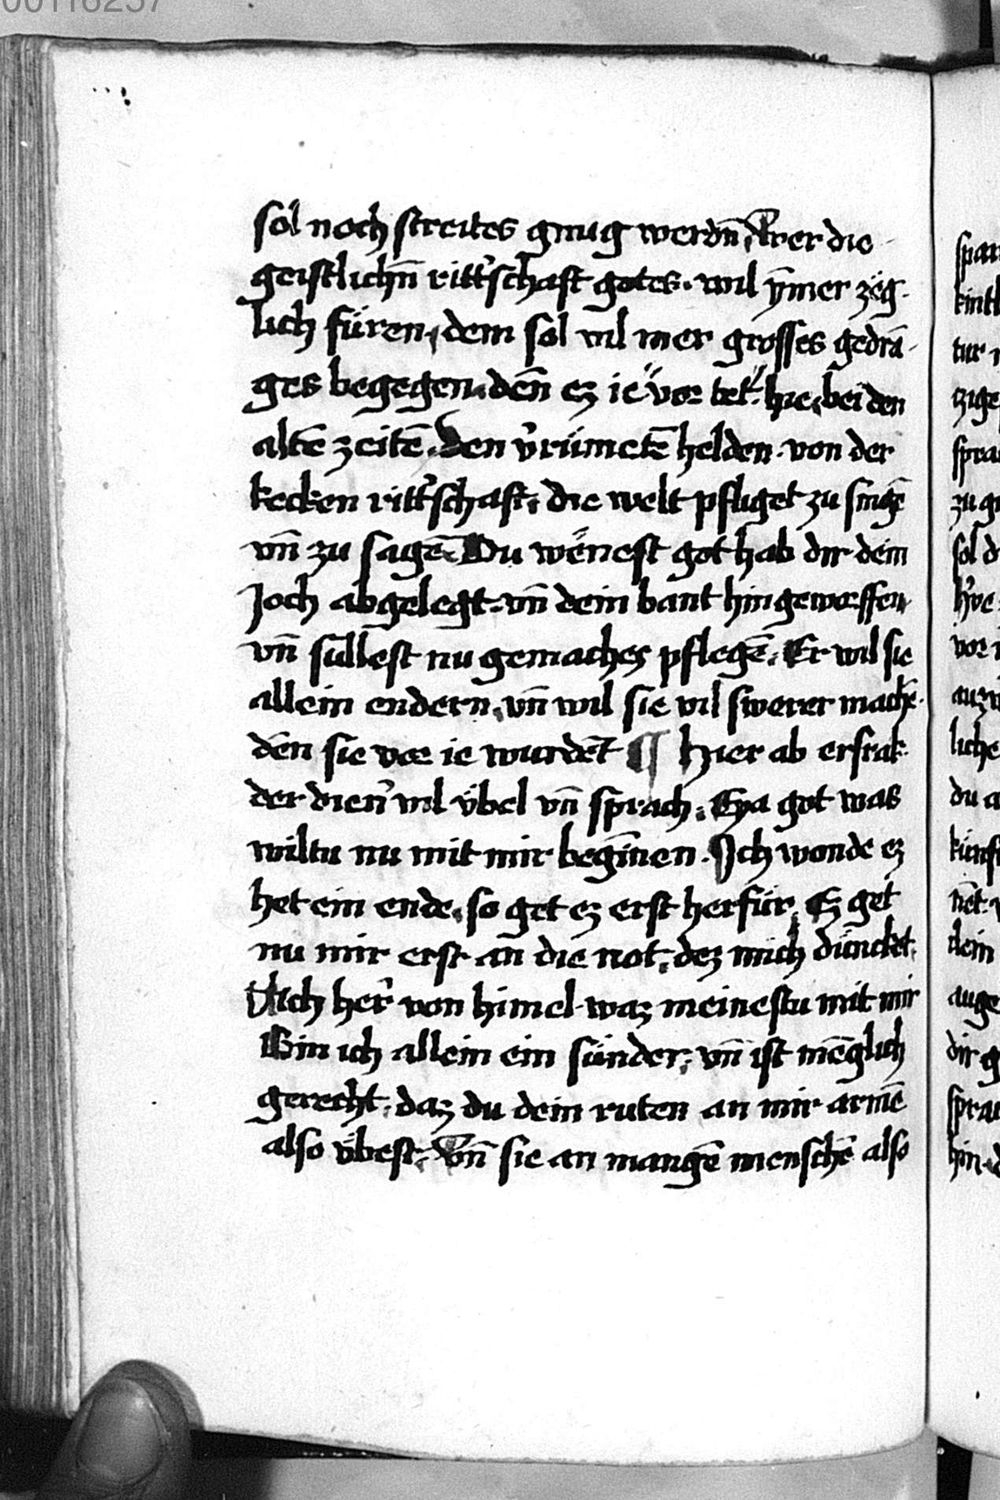 00116257
sol noch streites gnug werdn̄. Wer die
geistlichn̄ ritt'schaft gotes. wil ym̄er zëg-
lich füren, dem sol vil mer grosses gedrā-
ges begegen. den̄ ez ie vor tet. hie bei den
altē zeitē. den v'rümetē helden. von der
kecken ritt'schaft. die welt pfliget zu singē
vn̄ zu sagē. Du wënest got hab dir dein
Joch abgelegt. vn̄ dein bant hingeworffen
vn̄ sullest nu gemaches pflegē. Er wil sie
allein endern. vn̄ wil sie vil swerer machē.
den̄ sie vor ie wurdēt ¶ Hier ab ersrak-
der dien' vil vbel vn̄ sprach. Eya got was
wiltu nu mit mir begin̄en. Ich wonde ez
het ein ende. so get ez erst herfür. Ez get
nu mir erst an die not. dez mich düncket.
Ach her' von himel. waz meinestu mit mir
Bin ich allein ein sünder. vn̄ ist mēglich
gerecht. daz du dein ruten an mir armē
also vbest. Vn̄ sie an mangē menschē also